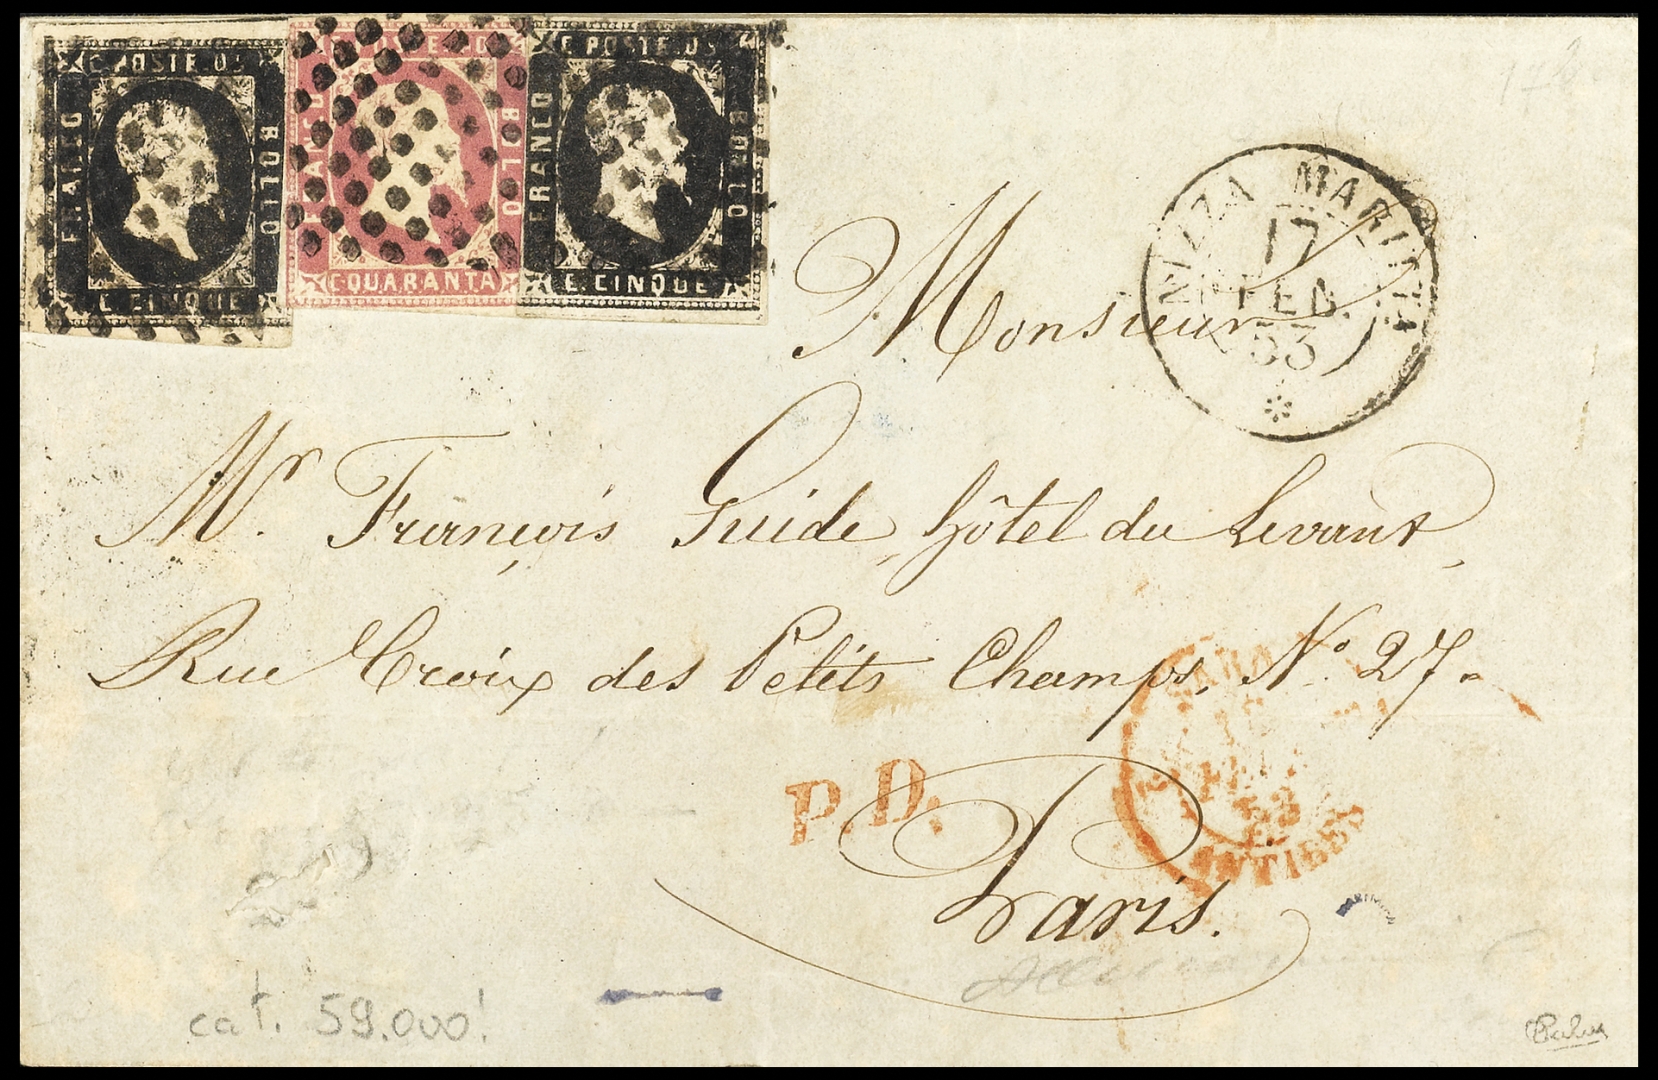 C. POSTE. OS
FRANCO
BOLLO
C. CINQUE
FRANCO
BOLLO
C. QUARANTA
C. POSTE. OS
FRANCO
BOLLO
C. CINQUE
NIZZA MARITTA
17
FEB.
53
Monsieur
Mr. François Guide, hôtel du Levant,
Rue Croix des Petits Champs, No. 27.
P.D.
Paris.
53
ANTIBES
cat. 59.000!